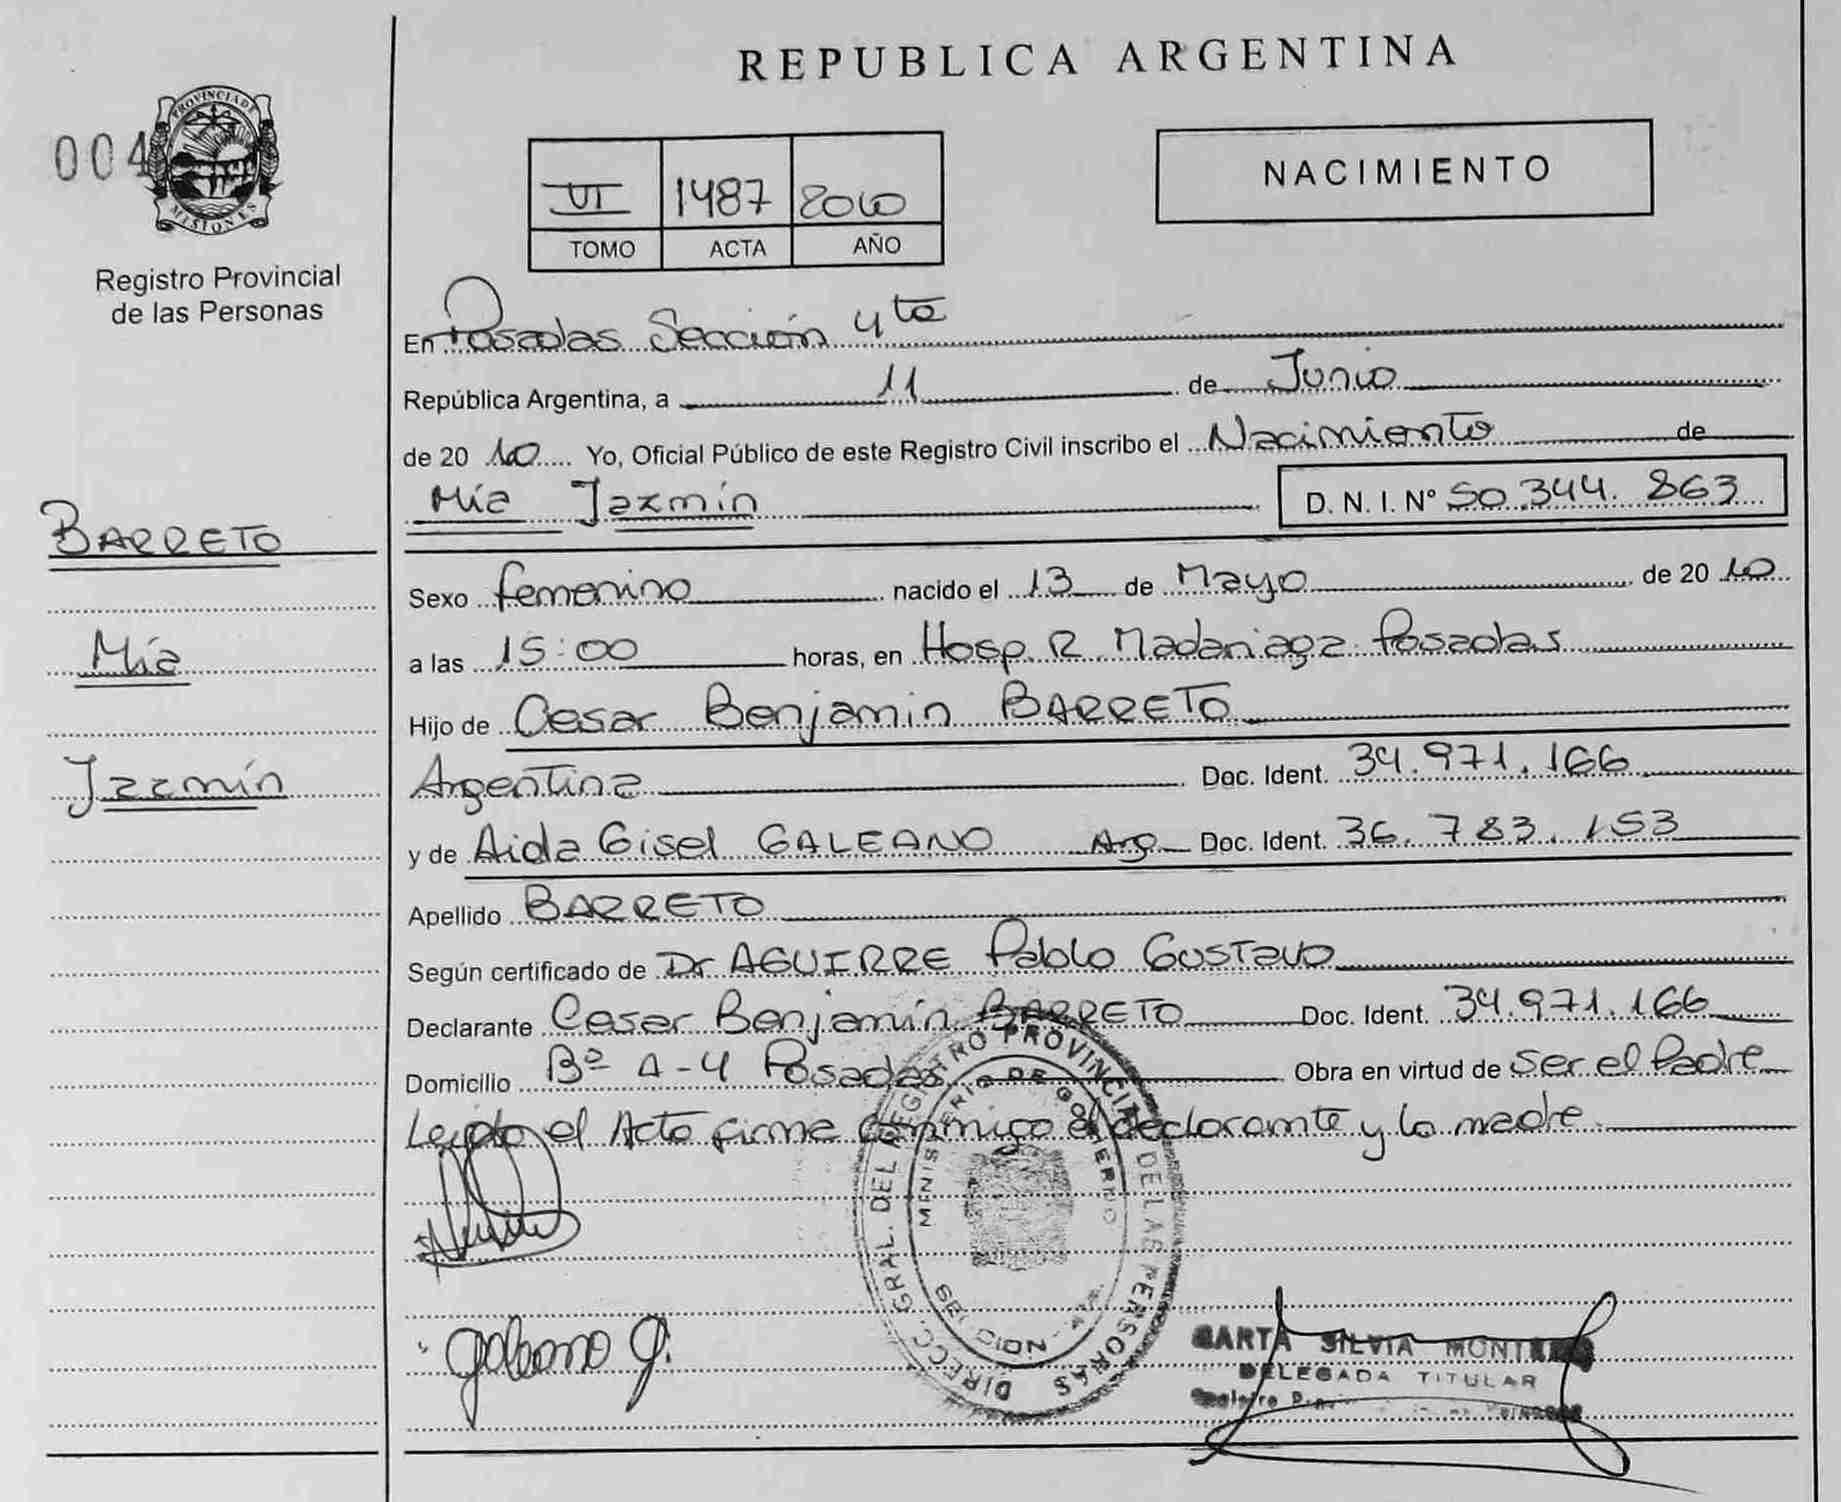 REPUBLICA ARGENTINA
004
PROVINCIA DE
MISIONES
Registro Provincial
de las Personas
VI 1487 2010
TOMO ACTA AÑO
NACIMIENTO
En Posadas Sección 4ta
República Argentina, a 11 de Junio
de 20 10 Yo, Oficial Público de este Registro Civil inscribo el Nacimiento de
Mía Jazmín D. N. I. N° 50.344.863
BARRETO
Mía
Jazmín
Sexo femenino nacido el 13 de Mayo de 20 10
a las 15:00 horas, en Hosp. R. Madariaga. Posadas
Hijo de Cesar Benjamin BARRETO
Argentina Doc. Ident. 34.971.166
y de Aida Gisel GALEANO Arg Doc. Ident. 36.783.153
Apellido BARRETO
Según certificado de Dr AGUIRRE Pablo Gustavo
Declarante Cesar Benjamín BARRETO Doc. Ident. 34.971.166
Domicilio Bº A-4 Posadas Obra en virtud de ser el Padre
Leído el Acto firme conmigo el declarante y la madre
DIRECC. GRAL. DEL REGISTRO PROVINCIAL DE LAS PERSONAS
MINISTERIO DE GOBIERNO
Galeano G.
SILVIA
DELEGADA TITULAR